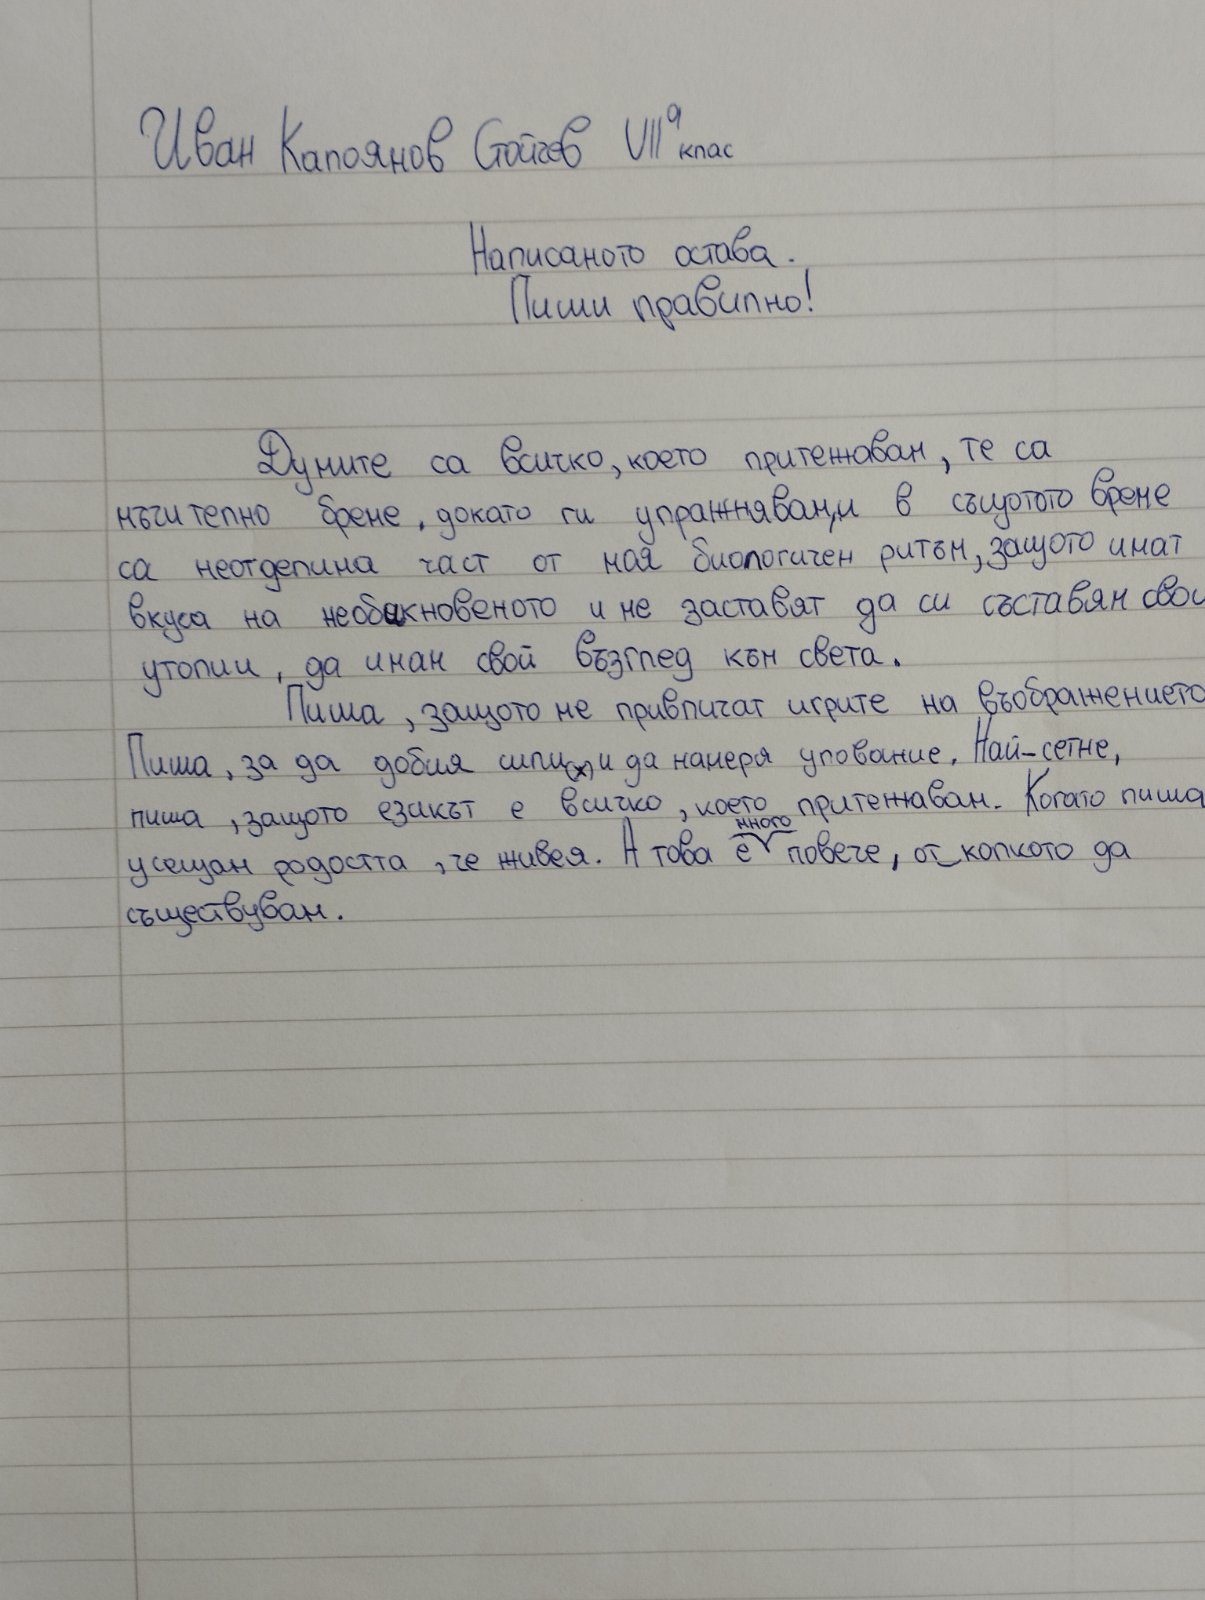 Иван Калоянов Стойчев VIIа клас
Написаното остава.
Пиши правилно!
Думите са всичко, което притежавам, те са
мъчително бреме, докато ги упражнявам, и в същотото време
са неотделима част от моя биологичен ритъм, защото имат
вкуса на необикновеното и ме заставят да си съставям свои
утопии, да имам свой възглед към света.
Пиша, защото ме привличат игрите на въображението
Пиша, за да добия сили и да намеря упование. Най-сетне,
пиша, защото езикът е всичко, което притежавам. Когато пиша
усещам радостта, че живея. А това е много повече, от колкото да
съществувам.